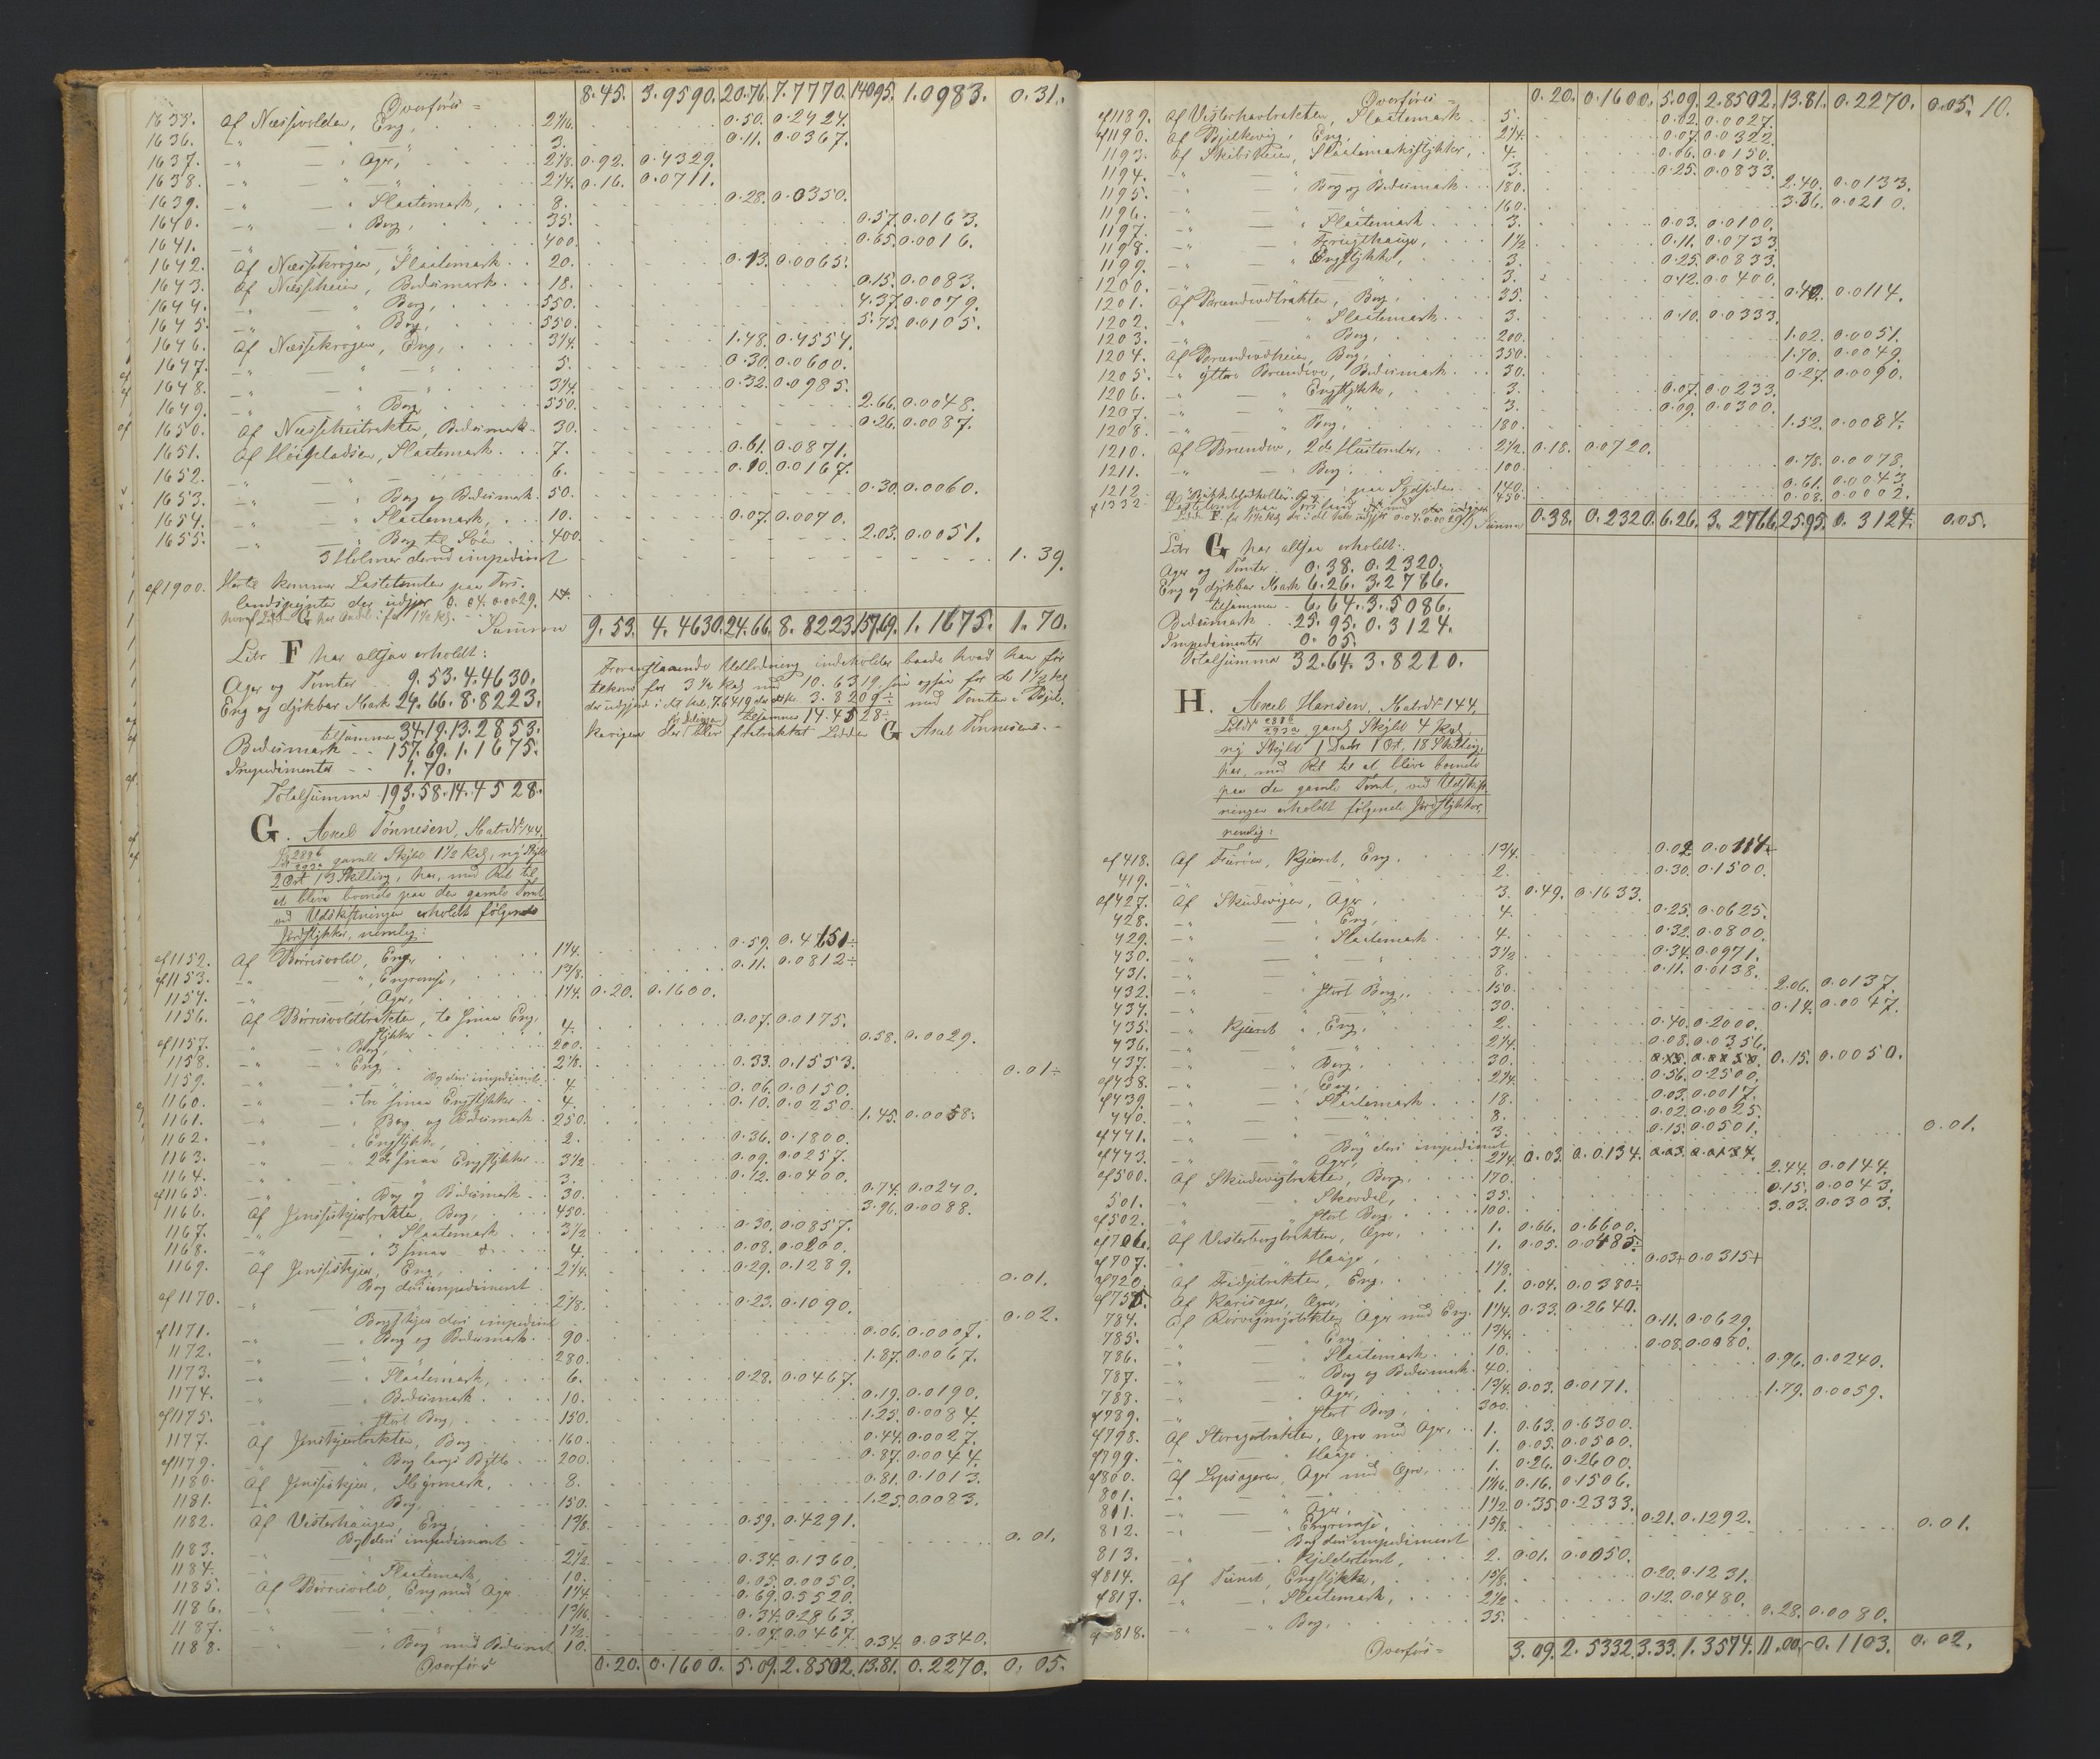 Overføres = 8.45. 3.9590. 20.76. 7.7770. 140.95. 1.0983. 0.31.
1635. af Næssvolden, Eng, 2 1/16. 0.50. 0.2424.
1636. -„ — „ 3. 0.11. 0.0367.
1637. -„ — „ Ager, 2 1/8. 0.92. 0.4329.
1638. -„ — „ 2 1/4. 0.16. 0.0711.
1639. -„ — „ Slaatemark, 8. 0.28. 0.0350.
1640. -„ — „ Berg, 35. 0.57. 0.0163.
1641. -„ — „ 400. 0.65. 0.0016.
1642. af Næsskrogen, Slaatemark 20. 0.13. 0.0065.
1643. af Næssheien, Beitesmark 18. 0.15. 0.0083.
1644. -„ — „ Berg, 550. 4.37. 0.0079.
1645. -„ — „ Berg, 550. 5.75. 0.0105.
1646. af Næsskrogen, Eng, 3 1/4. 1.48. 0.4554.
1647. -„ — „ 5. 0.30. 0.0600.
1648. -„ — „ 3 1/4. 0.32. 0.0985.
1649. -„ — Berg 550. 2.66. 0.0048.
1650. af Næssheitrakten, Beitesmark 30. 0.26. 0.0087.
1651. af Slaatemark 7. 0.61. 0.0871.
1652. -„ — „ 6. 0.10. 0.0167.
1653. -„ — „ Berg og Beitesmark 50. 0.30. 0.0060.
1654. -„ — „ Slaatemark, 10. 0.07. 0.0070.
1655. -„ — „ Berg til Søen 400. 2.03. 0.0051.
3 Holmer derved impediment 1.39.
af 1900. Hertil kommer Lastetomten paa Tors-
landspynten der udgjør 0.04. 0.0029.
hvoraf Litr G har Andel for 1 1/2 Kalv.
Summa 9.53. 4.4630. 24.66. 8.8223. 157.69. 1.1675. 1.70.
Litr F har altsaa erholdt:
Ager og Tomter 9.53. 4.4630.
Eng og dyrkbar Mark 24.66. 8.8223.
tilsammen 34.19. 13.2853.
Beitesmark 157.69. 1.1675.
Impedimenter 1.70.
Totalsumma 193.58. 14.4528.
Foranstaaende Udlodning indeholder baade hvad han for-
tilkom for 3 1/2 Kalv med 10.6319, som ogsaa for de 1 1/2 Kalv
3.8209 med Tomten i
tilsammen 14.4528
der blev fratrukket Lodden G Axel Tønnesens. -
G. Axel Tønnesen, Matr№ 144,
gamle Skyld 1 1/2 Kalv, ny Skyld
2 Ort 13 Skilling, har, med Ret til
at blive boende paa den gamle Tomt,
ved Udskiftningen erholdt følgende
Jordstykker, nemlig:
af 1152. af Børresvold, Eng, 1 1/4. 0.59. 0.4751
af 1153. -„ — „ Engrense, 1 3/8. 0.11. 0.0812
1154. -„ — Ager, 1 1/4. 0.20. 0.1600.
1156. af Børresvoldtrakten, to smaa Eng-
stykker 4. 0.07. 0.0175.
af 1157. -„ — „ Berg, 200. 0.58. 0.0029.
1158. -„ — „ Eng 2 1/8. 0.33. 0.1553.
Berg deri impediment 0.01
1159. 4. 0.06. 0.0150.
1160. -„ — „ tre smaa Engstykker 4. 0.10. 0.0250.
1161. -„ — „ Berg og Beitesmark 250. 1.45. 0.0058.
1162. -„ — „ Engstykke, 2. 0.36. 0.1800.
1163. -„ — „ 2de smaa Engstykker 3 1/2 0.09. 0.0257.
1164. -„ 3. 0.12. 0.0400.
af 1165. -„ — „ Berg og Beitesmark 30. 0.74. 0.0240.
1166. af Berg, 450. 3.96. 0.0088.
1167. -„ — „ Slaatemark 3 1/2 0.30. 0.0857.
1168. -„ — „ 3 smaa 4. 0.08. 0.0200.
1169. af Eng, 2 1/4. 0.29. 0.1289.
Berg deri impediment 0.01.
af 1170. 2 1/8. 0.23. 0.1090.
deri impediment 0.02.
af 1171. -„ — „ Berg og Beitesmark 90. 0.06. 0.0007.
1172. -„ — „ 280. 1.87. 0.0067.
1173. -„ — „ Slaatemark, 6. 0.28. 0.0467.
1174. -„ — „ Beitesmark 10. 0.19. 0.0190.
af 1175. -„ — „ stort Berg, 150. 1.25. 0.0084.
1177. af Berg 160. 0.44. 0.0027.
af 1179. -„ — „ Berg langs 200. 0.87. 0.0044.
1180. af Myrmark, 8. 0.81. 0.1013.
1181. -„ — „ Berg, 150. 1.25. 0.0083.
1182. af Vesterhaugen Eng 1 3/8. 0.59. 0.4291.
Berg deri impediment 0.01.
1183. -„ 2 1/2. 0.34. 0.1360.
1184. -„ — „ Slaatemark, 10. 0.05. 0.0050.
1185. af Børresvold, Eng med Ager 1 1/4. 0.69. 0.5520.
1186. -„ — „ 1 3/16. 0.34. 0.2863.
1187. -„ — „ 1 1/2. 0.07. 0.0467.
1188. -„ — „ Berg med Beitesmark 10. 0.34. 0.0340.
Overføres 0.20. 0.1600. 5.09. 2.8502. 13.81. 0.2270. 0.05.
Overføres = 0.20. 0.1600. 5.09. 2.8502. 13.81. 0.2270. 0.05. 10.
af 1189. af Slaatemark 5. 0.02. 0.0027.
af 1190. af Bjelkevig, Eng, 2 1/4. 0.07. 0.0322.
1193. af Slaatemarksstykker, 4. 0.06. 0.0150.
1194. „ 3. 0.25. 0.0833.
1195. -„ — „ Berg og Beitesmark 180. 2.40. 0.0133.
1196. -„ 160. 3.36. 0.0210.
1197. -„ — „ Slaatemark 3. 0.03. 0.0100.
1198. -„ — „ 1 1/2 0.11. 0.0733.
1199. -„ — „ Engstykke, 3. 0.25. 0.0833.
1200. -„ — „ 3. 0.12. 0.0400.
1201. af Brændvotrakten, Berg, 35. 0.40. 0.0114.
1202. -„ — „ Slaatemark 3. 0.10. 0.0333.
1203. -„ — „ Berg, 200. 1.02. 0.0051.
1204. af Berg, 350. 1.70. 0.0049.
1205. -„ ytter Beitesmark 30. 0.27. 0.0090.
1206. -„ — „ Engstykke, 3. 0.07. 0.0233.
1207. -„ — „ 3. 0.09. 0.0300.
1208. -„ — „ Berg, 180. 1.52. 0.0084.
1210. af 2de Hustomter, 2 1/2 0.18. 0.0720.
1211. -„ — „ Berg, 100. 0.78. 0.0078.
1212 140. 0.61. 0.0043.
af 1332. Lastetomt paa Torsland 450. 0.08. 0.0002.
Summa 0.38. 0.2320. 6.26. 3.2766. 25.95. 0.3124. 0.05.
Litr G har altsaa erholdt:
Ager og Tomter 0.38. 0.2320.
Eng og dyrkbar Mark 6.26. 3.2766.
tilsammen 6.64. 3.5086.
Beitesmark 25.95. 0.3124.
Impedimenter 0.05.
Totalsumma 32.64. 3.8210.
H. Axel Hansen, Matr№ 144,
gamle Skyld 4 Kalv,
ny Skyld 1 Daler 1 Ort, 18 Skilling,
har, med Ret til at blive boende
paa den gamle Tomt, ved Udskift-
ningen erholdt følgende Jordstykker,
nemlig:
af 418. af Kjæret, Eng, 1 3/4. 0.02 0.0114
419. -„ 2. 0.30. 0.1500.
af 427. af Skudevigen, Ager, 3. 0.49. 0.1633.
428. -„ — „ Eng, 4. 0.25. 0.0625.
429. -„ — „ Slaatemark 4. 0.32. 0.0800.
430. -„ — „ 3 1/2 0.34. 0.0971.
431. -„ 8. 0.11. 0.0138.
432. -„ — „ stort Berg, 150. 2.06. 0.0137.
434. -„ 30. 0.14. 0.0047.
435. -„ Kjæret „ Eng, 2. 0.40. 0.2000.
436. -„ — „ 2 1/4. 0.08. 0.0356.
437. -„ — „ Berg, 30. 0.15. 0.0050.
af 438. -„ — „ Eng, 2 1/4. 0.56. 0.2500.
af 439. -„ — „ Slaatemark 18. 0.03. 0.0017.
440. -„ 8. 0.02. 0.0025.
af 441. -„ 3. 0.15. 0.0501.
Berg deri impediment 0.01.
af 443. -„ Ager, 2 1/4. 0.03. 0.0134.
af 500. af Skudevigtrakten, Berg, 170. 2.44. 0.0144.
501. -„ — „ 35. 0.15. 0.0043.
af 502. -„ — „ stort Berg, 100. 3.03. 0.0303.
af 706. af Vesterbergtrakten, 1. 0.66. 0.6600.
af 707. -„ — Hauge, 1. 0.05. 0.0485
af 720. af Eng, 1 1/8. 0.03+ 0.0315+
af 755. af 1. 0.04. 0.0380
784. af Ager med Eng 1 1/4. 0.33. 0.2640.
785. -„ — „ Eng 1 3/4. 0.11. 0.0629.
786. -„ — „ Slaatemark 10. 0.08. 0.0080.
787. -„ — „ Berg og Beitesmark 40. 0.96. 0.0240.
788. -„ — „ Ager, 1 3/4. 0.03. 0.0171.
af 789. -„ — „ stort Berg, 300. 1.79. 0.0059.
af 798. af med Ager, 1. 0.63. 0.6300.
af 799. -„ — „ Hauge 1. 0.05. 0.0500.
af 800. af Ager med 1. 0.26. 0.2600.
801. -„ 1 1/16. 0.16. 0.1506.
811. -„ — „ Ager, 1 1/2 0.35 0.2333.
812. -„ — „ Engrense, 1 5/8. 0.21. 0.1292.
Berg deri impediment 0.01.
813. -„ — „ Kjeldertomt, 2. 0.01. 0.0050.
af 814. af Tunet, Engstykke, 1 5/8. 0.20. 0.1231.
af 817. -„ — „ Slaatemark, 2 1/2 0.12. 0.0480.
af 818. -„ — „ Berg, 35. 0.28. 0.0080.
Overføres = 3.09. 2.5332. 3.33. 1.3574. 11.00. 0.1103. 0.02.